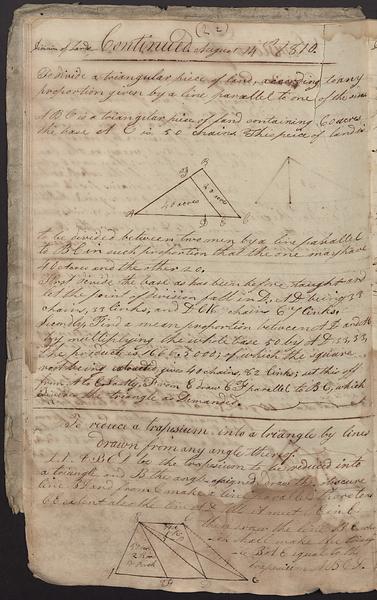 (22)
Division of Lands Continued August 14th 1810
To divide a triangular piece of land, according to any
proportion given by a line parallel to one of the sides
A B C is a triangular piece of land containing 60 acres
the base A C is 50 chains this peice of land is
B
40 acres
20 acres
A D E C
to be divided between two men by a line parallel
to B C in such proportion that the one may have
40 acres and the other 20.
First divide the base as has been before taught and
let the point of division fall in D, A D being 33
chains, 33 links, and D C 16 chains 67 links;
Secondly Find a mean proportion between A D and A C
By multiplying the whole base 50 by A D 33,33,
the product is 1666,5000; of which the square
root being extracted gives 40 chains, 82 links; set this off
from A to E. Lastly, From E draw parallel to B C, which
divides the triangle as Demanded.
To reduce a trapesium into a triangle by lines
drawn from any angle thereof.
Let A B C D be the trapesium to be reduced into
a triangle and B the angle assigned, draw the obscure
line B D and from C make a line parallel
extent also the line A D till it meet
then draw the line B E
shall make the triangle
equal to the
trapesium A B C D.